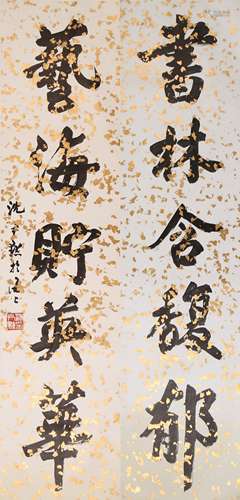 書林含馥郁
藝海貯英華
沈尹默於海上